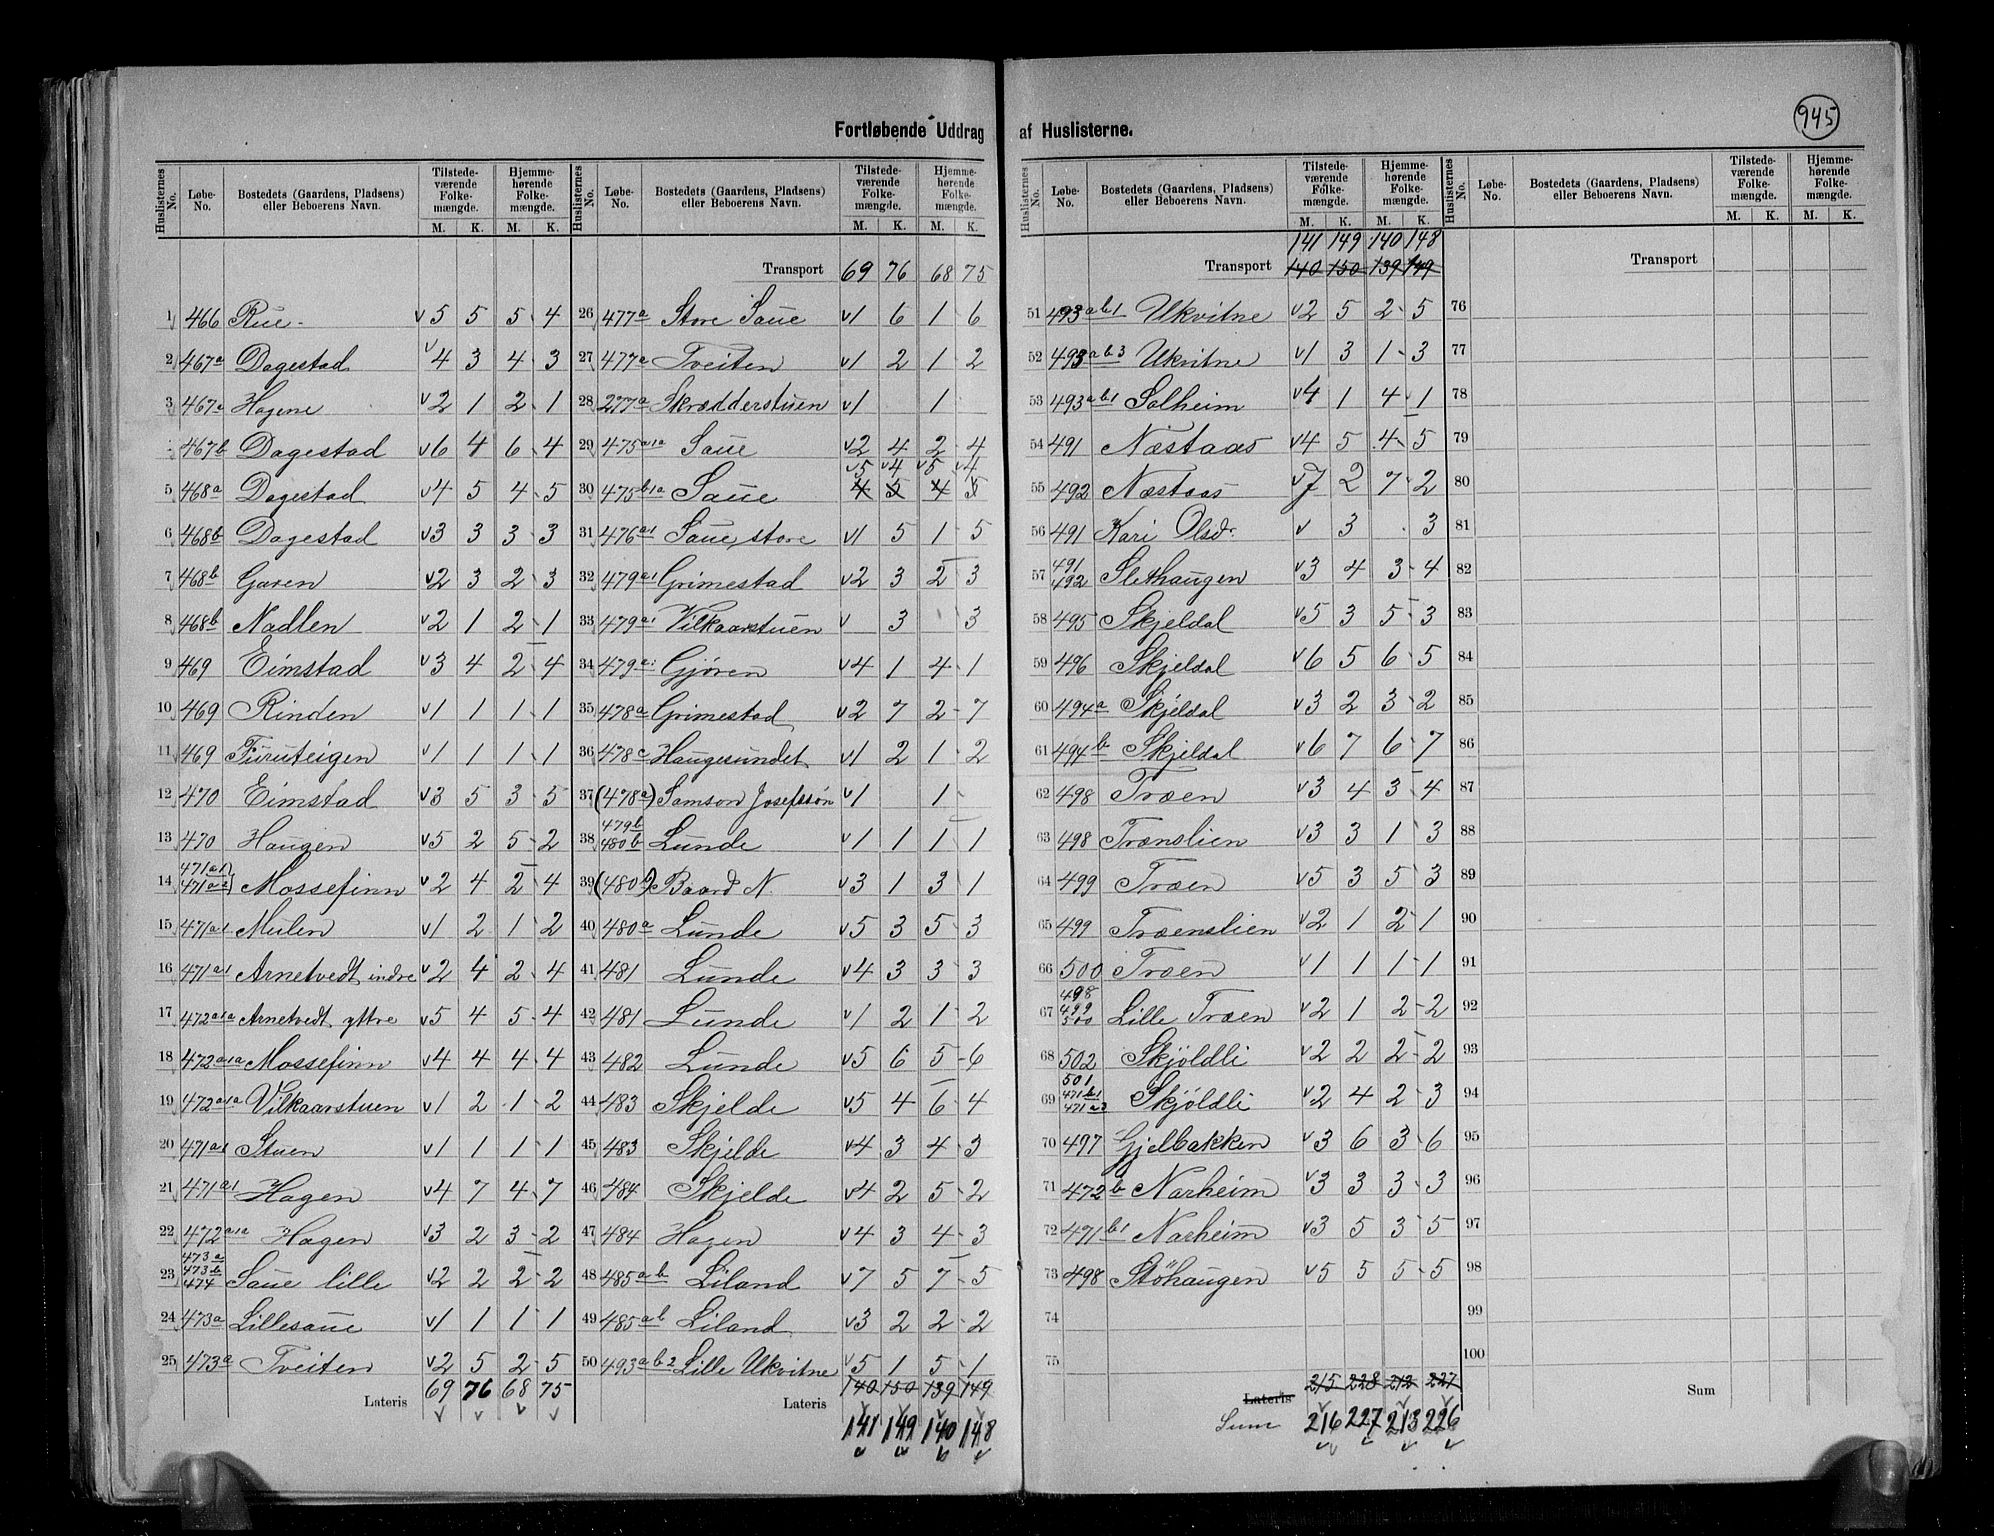 945
Fortløbende Uddrag af Huslisterne.
Huslisternes No. Løbe-No. Bostedets (Gaardens, Pladsens) eller Beboerens Navn. Tilstede-værende Folke-mængde. M. K. Hjemme-hørende Folke-mængde. M. K.
1 466 Rue v5 5 5 4
2 467a Dagestad v4 3 4 3
3 467a Hagene v2 1 2 1
467b Dagestad v6 4 6 4
5 468a Dagestad v4 5 4 5
6 468b Dagestad v3 3 3 3
7 468b Garen v2 3 2 3
8 468b Nadlen v2 1 2 1
9 469 Eimstad v3 4 2 4
10 469 Rinden v1 1 1 1
11 469 Furuteigen v1 1 1 1
12 470 Eimstad v3 5 3 5
13 470 Haugen v5 2 5 2
14 471a1 471a2 Mossefinn v2 4 2 4
15 471a1 Mulen v1 2 1 2
16 471a1 Arnetvedt indre v2 4 2 4
17 472a1a Arnetvedt yttre v5 4 5 4
18 472a1a Mossefinn v4 4 4 4
19 472a1a Vilkaarstuen v1 2 1 2
20 471a1 Stuen v1 1 1 1
21 471a1 Hagen v4 7 4 7
22 472a1a Hagen v3 2 3 2
23 473a 473b 474 Saue lille v2 2 2 2
24 473a Lillesaue v1 1 1 1
25 473a Tveiten v2 5 2 5
Lateris 69 76 68 75
Huslisternes No. Løbe-No. Bostedets (Gaardens, Pladsens) eller Beboerens Navn. Tilstede-værende Folke-mængde. M. K. Hjemme-hørende Folke-mængde. M. K.
Transport 69 76 68 75
26 477a Store Saue v1 6 1 6
27 477a Tveiten v1 2 1 2
28 277a Skrædderstuen v1 1
29 475a1a Saue v2 4 2 4
v5 v4 v5 v4
30 475b1a Saue 4 5 4 5
31 476a1 Saue store v1 5 1 5
32 479a1 Grimestad v2 3 2 3
33 479a1 Vilkaarstuen v 3 3
34 479a1 Gjøren v4 1 4 1
35 478a Grimestad v2 7 2 7
36 478c Haugesundet v1 2 1 2
37 (478a) Samson Josefssøn v1 1
38 479b 480b Lunde v1 1 1 1
39 (480b) Baard N. v3 1 3 1
40 480a Lunde v5 3 5 3
41 481 Lunde v4 3 3 3
42 481 Lunde v1 2 1 2
43 482 Lunde v5 6 5 6
44 483 Skjelde v5 4 6 4
45 483 Skjelde v4 3 4 3
46 484 Skjelde v4 2 5 2
47 484 Hagen v4 3 4 3
48 485ab Liland v7 5 7 5
49 485ab Liland v3 2 2 2
50 493ab2 Lille Ukvitne v5 1 5 1
Lateris 140 150 139 149
141 149 140 148
Huslisternes No. Løbe-No. Bostedets (Gaardens, Pladsens) eller Beboerens Navn. Tilstede-værende Folke-mængde. M. K. Hjemme-hørende Folke-mængde. M. K.
141 149 140 148
Transport 140 150 139 149
51 493ab1 Ukvitne v2 5 2 5
52 493ab3 Ukvitne v1 3 1 3
53 493ab1 Solheim v4 1 4 1
54 491 Næstaas v4 5 4 5
55 492 Næstaas v7 2 7 2
56 491 Kari Olsdr. v 3 3
57 491 492 Slethaugen v3 4 3 4
58 495 Skjeldal v5 3 5 3
59 496 Skjeldal v6 5 6 5
60 494a Skjeldal v3 2 3 2
61 494b Skjeldal v6 7 6 7
62 498 Træen v3 4 3 4
63 498 Trænslien v3 3 1 3
64 499 Træen v5 3 5 3
65 499 Træenslien v2 1 2 1
66 500 Træen v1 1 1 1
67 498 499 500 Lille Træen v2 1 2 2
68 502 Skjöldli v2 2 2 2
69 501 471b1 471a3 Skjöldli v2 4 2 3
70 497 Gjelbakken v3 6 3 6
71 472b Narheim v3 3 3 3
72 471b1 Narheim v3 5 3 5
73 498 Stöhaugen v5 5 5 5
74
75
Lateris 215 228 212 227
Sum 216 227 213 226
Huslisternes No. Løbe-No. Bostedets (Gaardens, Pladsens) eller Beboerens Navn. Tilstede-værende Folke-mængde. M. K. Hjemme-hørende Folke-mængde. M. K.
Transport
76
77
78
79
80
81
82
83
84
85
86
87
88
89
90
91
92
93
94
95
96
97
98
99
100
Sum